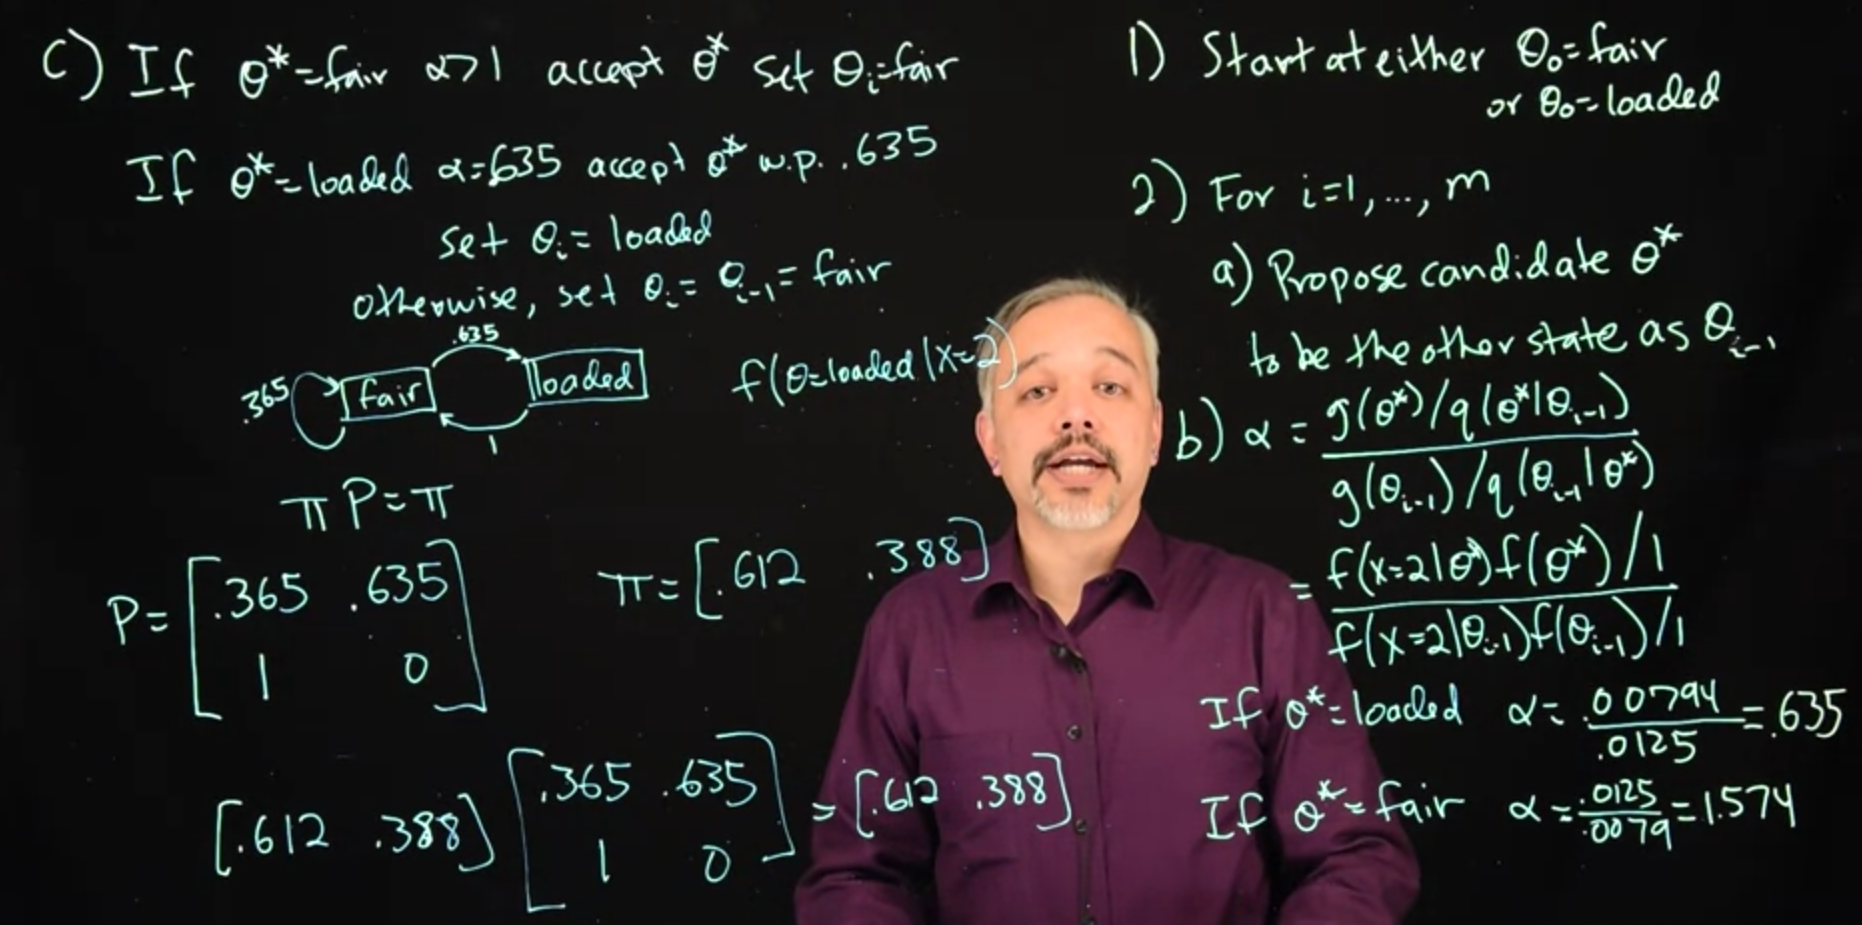 c) If θ*=fair α>1 accept θ* set θᵢ=fair
If θ*=loaded α=.635 accept θ* w.p. .635
set θᵢ= loaded
otherwise, set θᵢ= θᵢ₋₁= fair
.635
.365 fair loaded
1
f(θ=loaded|X=2)
πP=π
P= [.365 .635
1 0]
π=[.612 .388]
[.612 .388] [.365 .635
1 0] = [.612 .388]
1) Start at either θ₀=fair
or θ₀=loaded
2) For i=1,..., m
a) Propose candidate θ*
to be the other state as θᵢ₋₁
b) α = g(θ*)/q(θ*|θᵢ₋₁)
g(θᵢ₋₁)/q(θᵢ₋₁|θ*)
= f(x=2|θ*)f(θ*)/1
f(x=2|θᵢ₋₁)f(θᵢ₋₁)/1
If θ*=loaded α= .00794
.0125 =.635
If θ*=fair α= .0125
.0079 =1.574